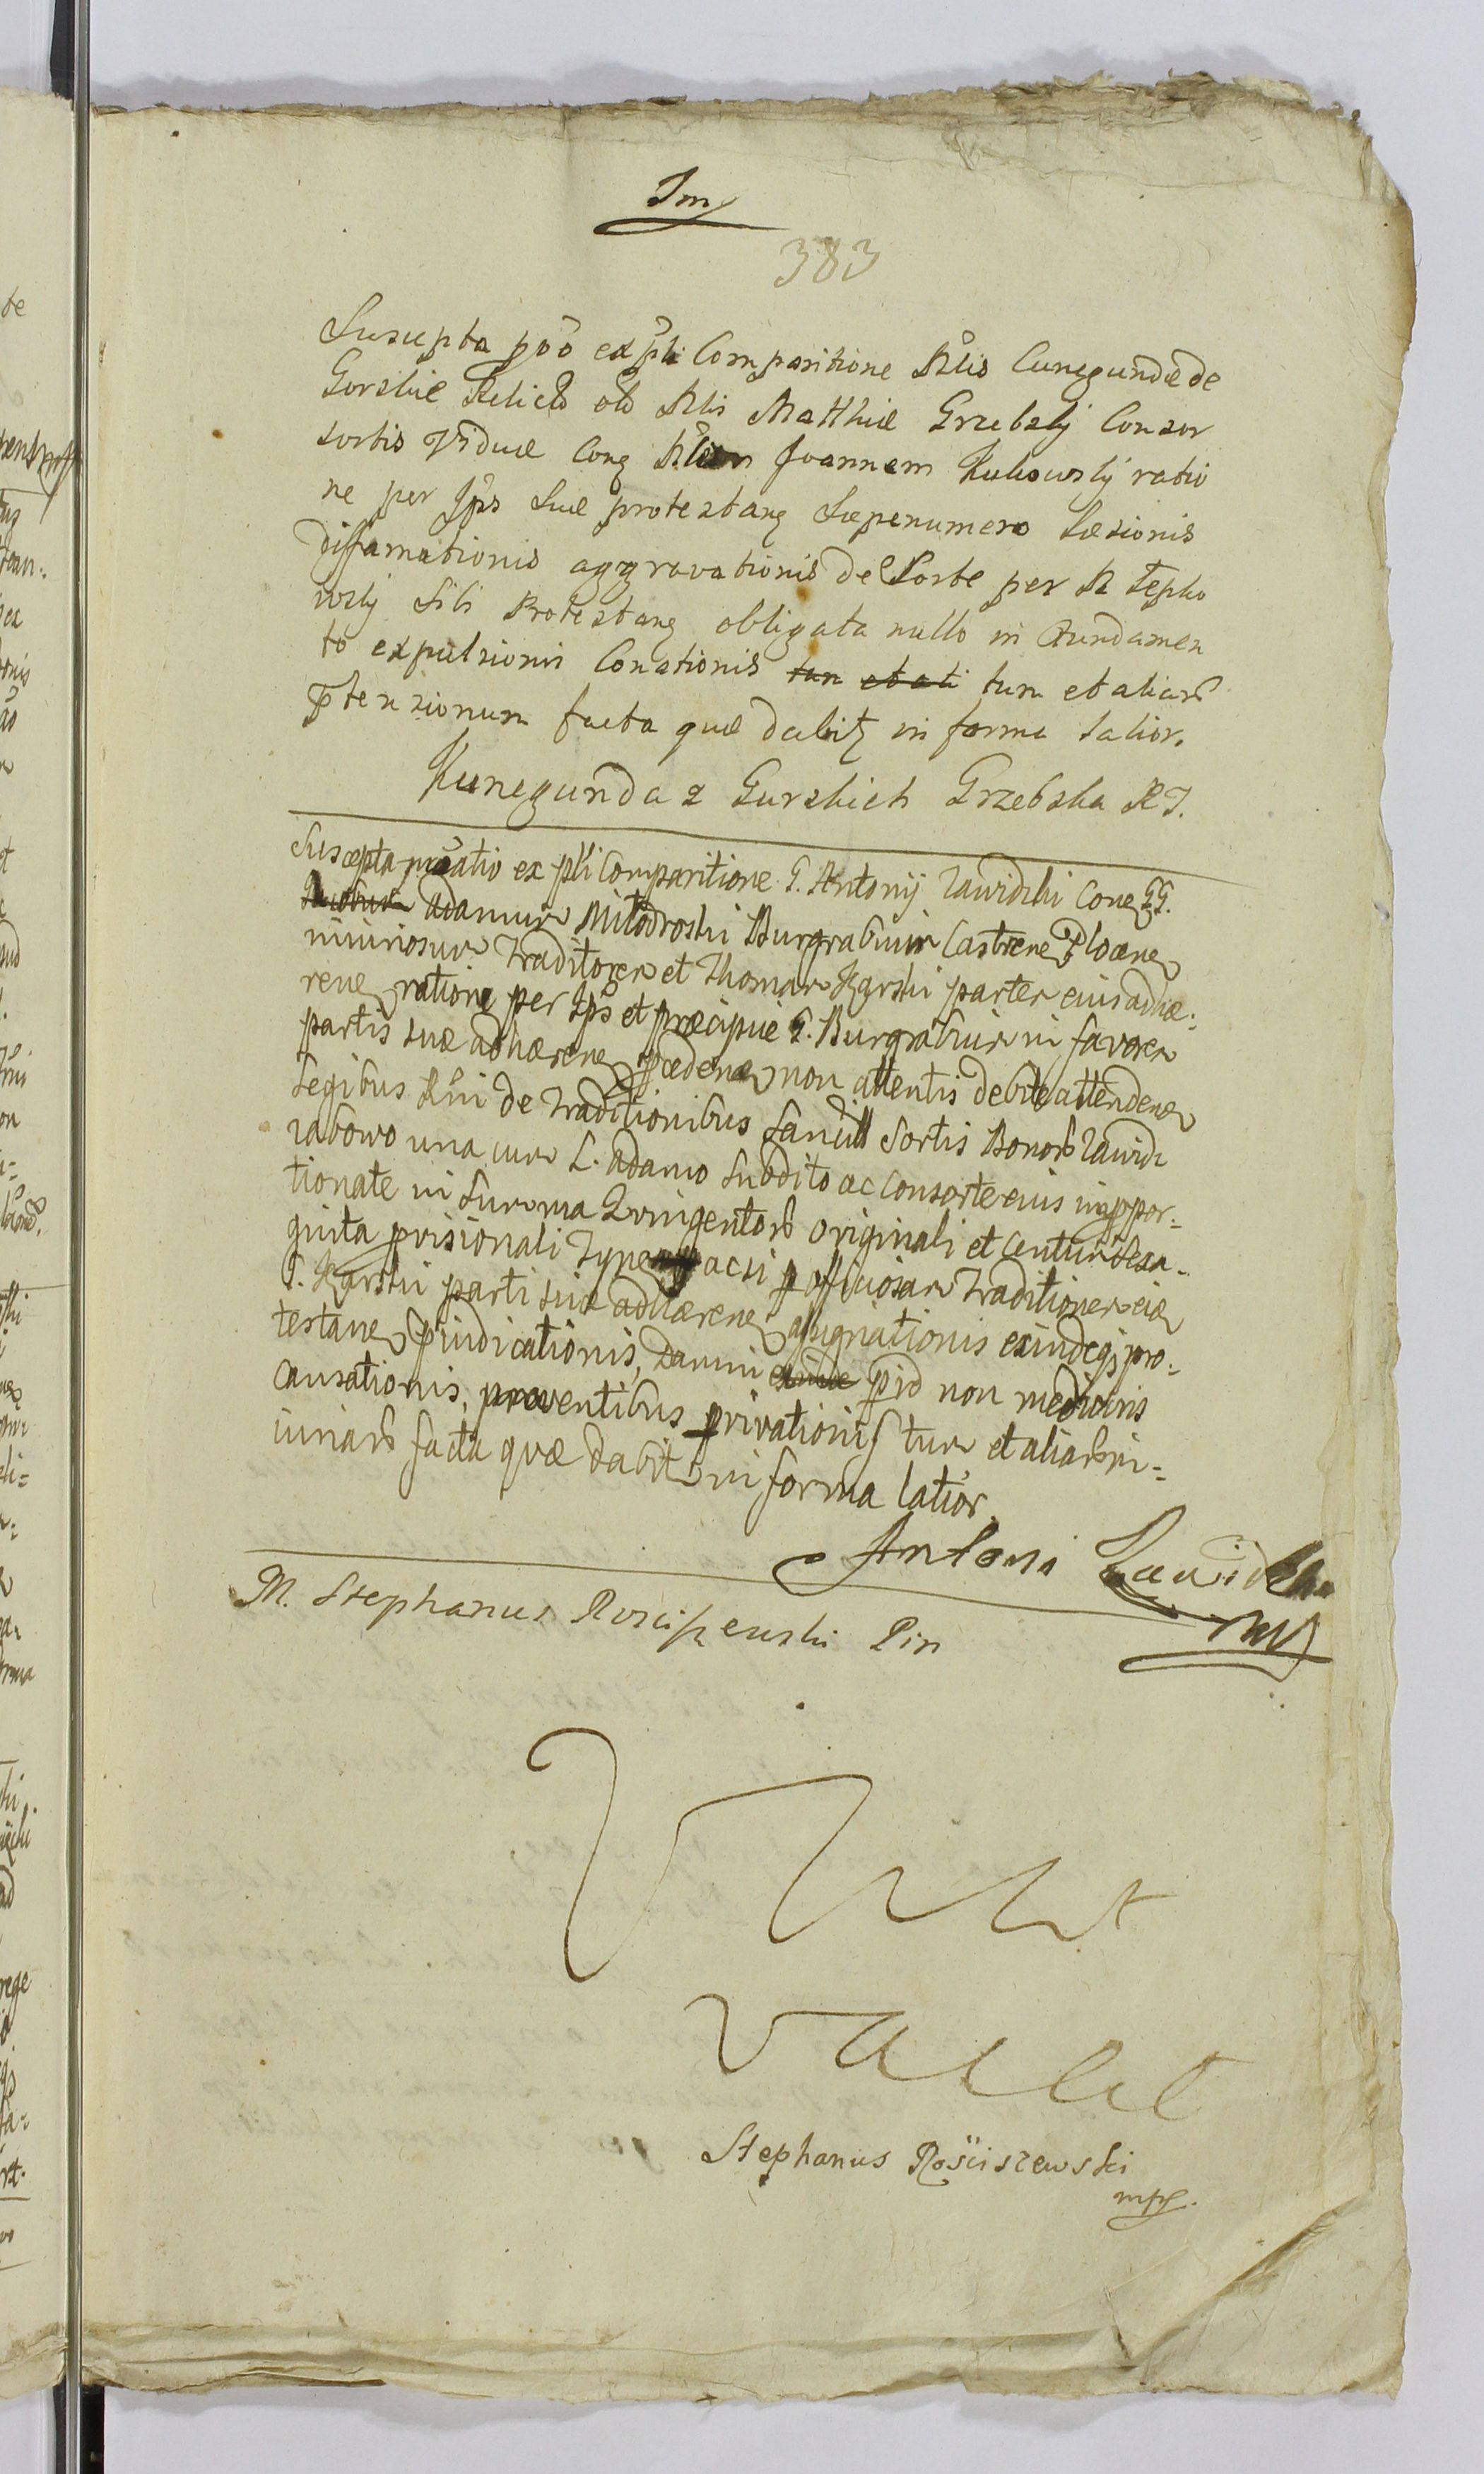 Im
383
Suscepta põõ ex pli Comparitione Nlis Cunegundæ de
Gorskie Relictæ olD Nlis Matthiæ Grzebsky Conzor
sortis Viduæ Con Nlem Joannem Kukowsky ratio
ne per Ips Suæ protestan Sæpenumero Læsionis
diffamationis aggravationis de Sorte per N Tepko
wsky Sibi Protestan obligata nullo in Fundamen
to expulsionis Conationis tum et ali tum et aliarD
ptensionum facta quæ dabit in forma latior.
Kunegunda z Gurskich Grzebska
Suscepta ex pli Comparitione G. Antonij Zawidzki Con GG.
Adamum Milodroski Burgrabium Castrens Plocen
iniuriosum Traditorem et Thomam Karski partem eius adhæ:
ren ratione per Ips et præcipue G. Burgrabium in favorem
partis suæ adhæren non attentis debite attenden
Legibus Rni de Traditionibus Sancitis Sortis BonorD Zawidz
una cum L. Adamo Subdito ac Consorte eius inppor:
tionate in Summa QuingentorD originali et Centum Sexa
ginta prisionali acsi p officiosam Traditionem
G. Karski parti suæ adhæren assignationis exindeq pro:
testan pjudicationis, Damni exinde pid non mediocris
causationis, proventibus privationis tum et aliarD in:
iuriarD facta quæ dabit in forma latior.
Antoni Zawidzki
mp
M. Stephanus Rosciszewski
Stephanus Rościszewski
mp.